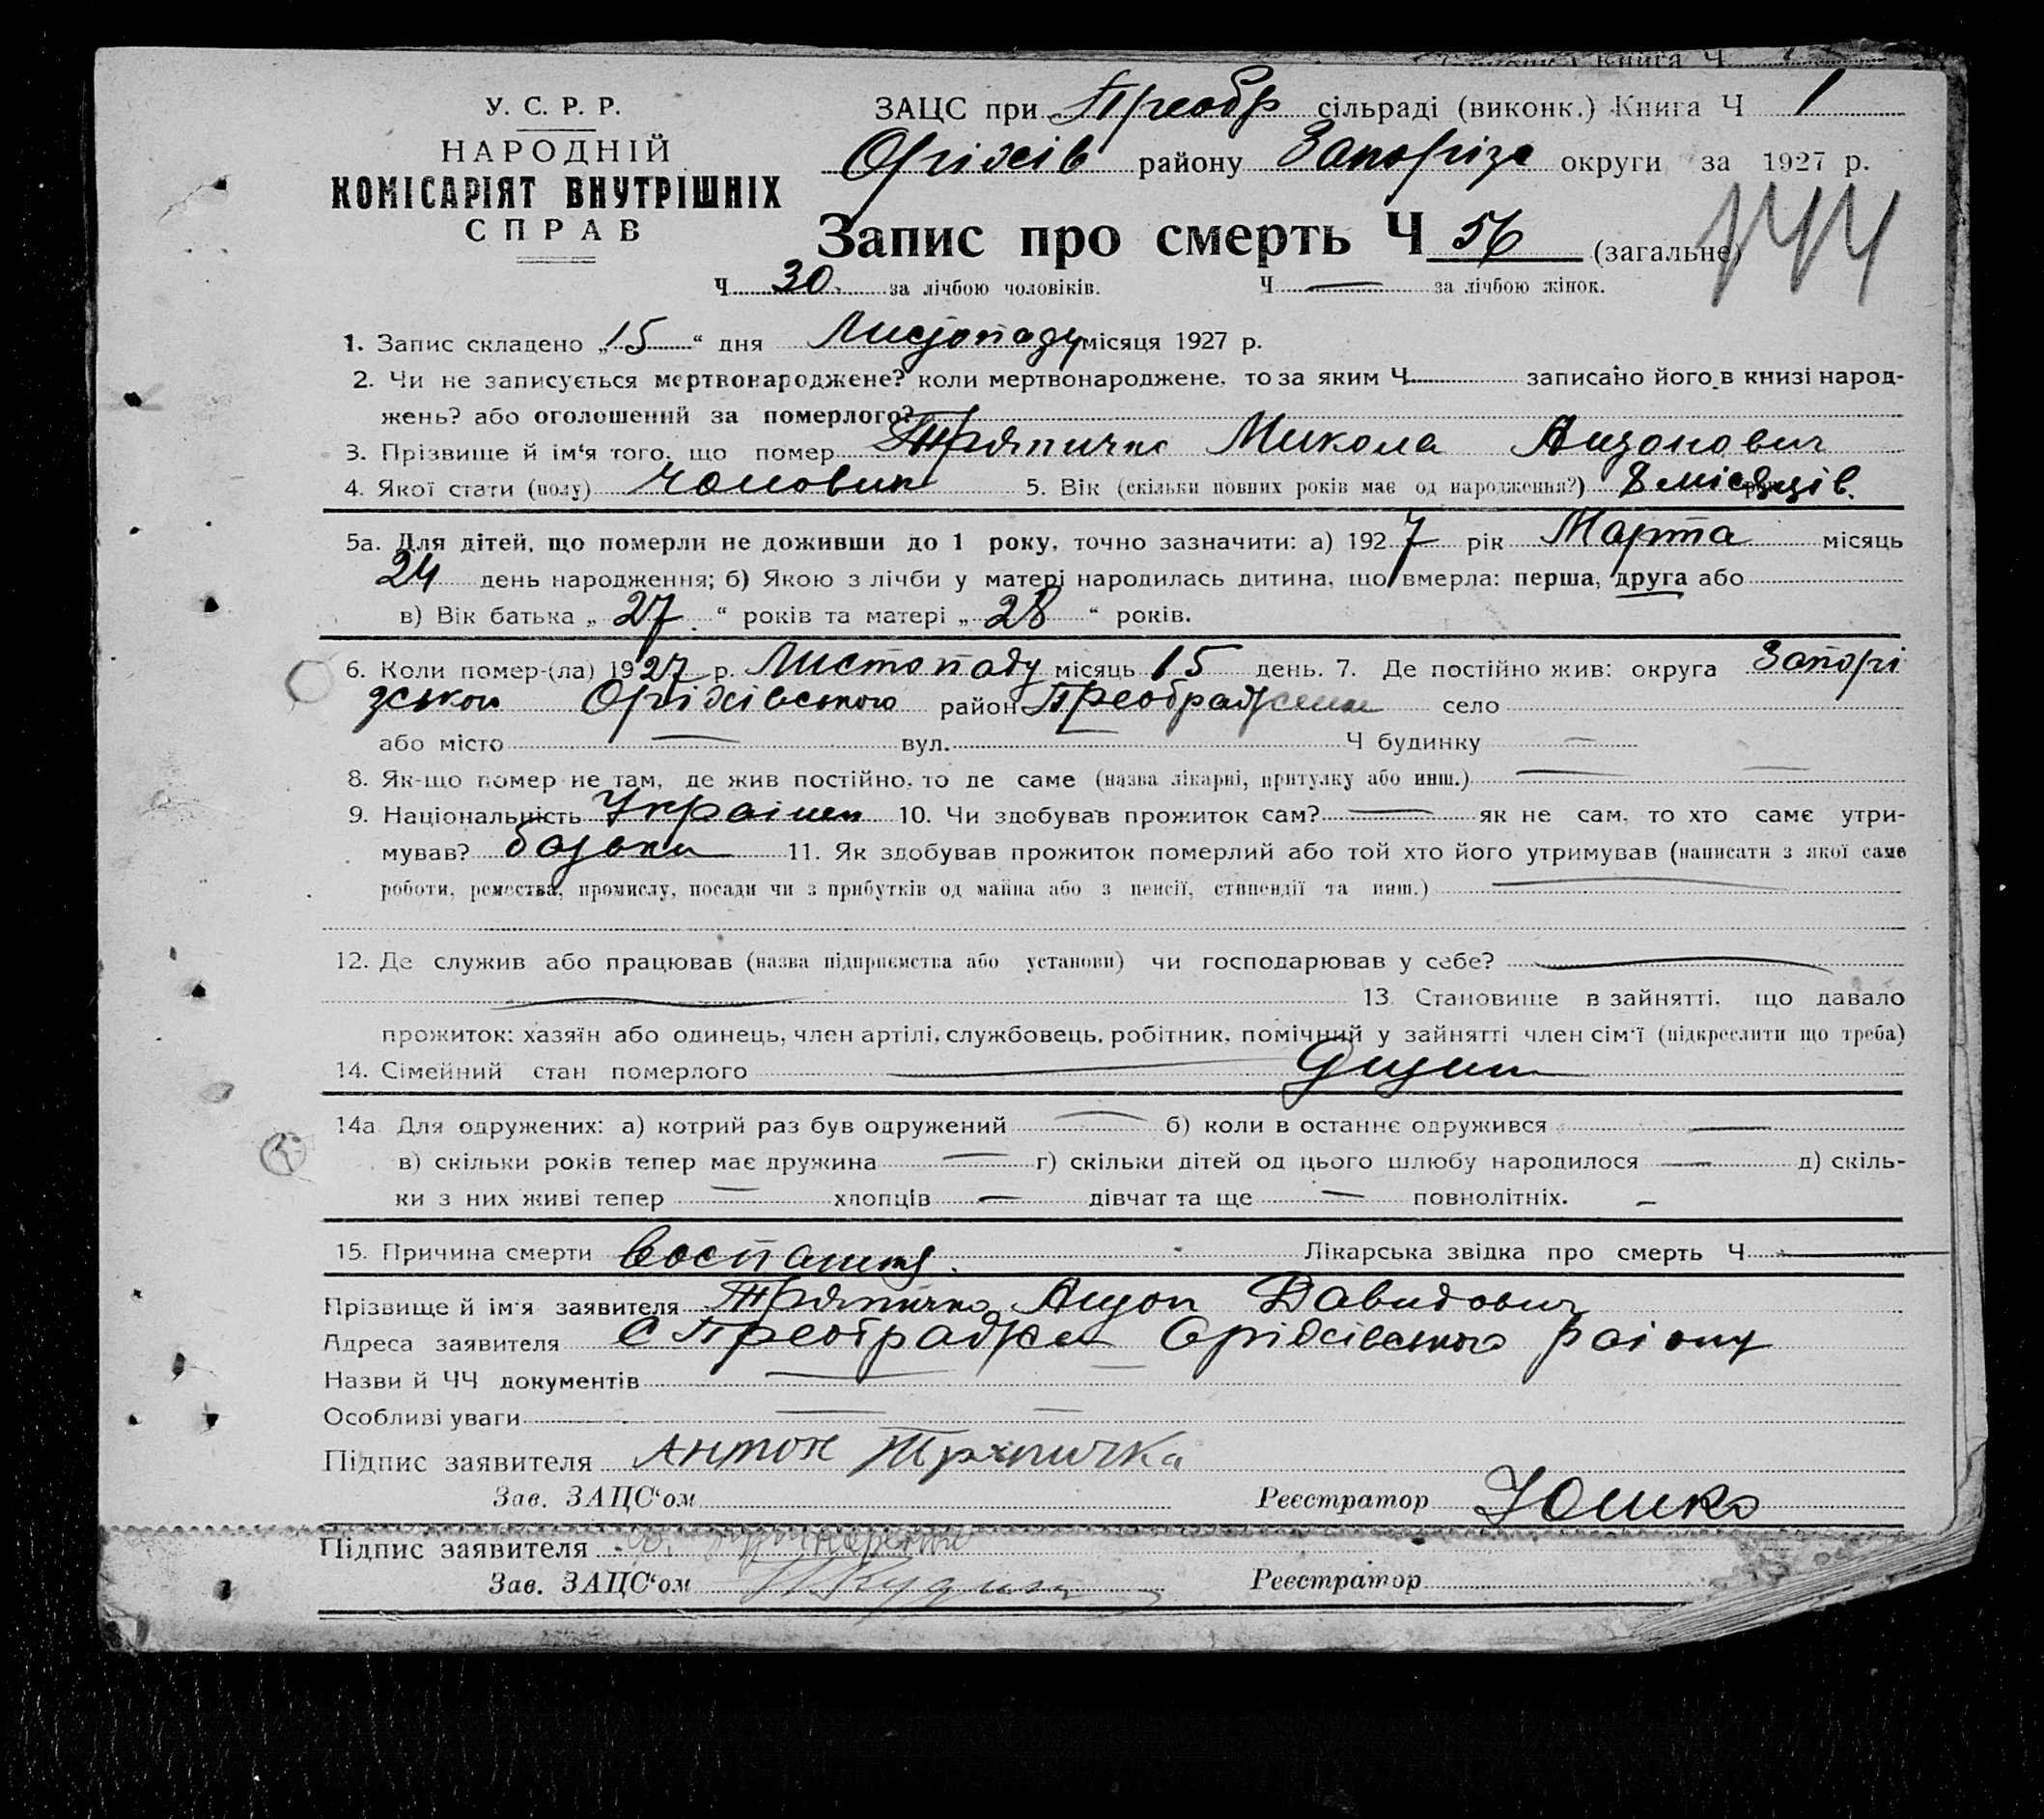 книга Ч
У. С. Р. Р.
НАРОДНІЙ
КОМІСАРІЯТ ВНУТРІШНІХ
СПРАВ
ЗАЦС при Преобр сільраді (виконк.) Книга Ч 1
Оріхів району Запоріз округи за 1927 р.
Запис про смерть Ч 56 (загальне)
144
Ч 30 за лічбою чоловіків. Ч — за лічбою жінок.
1. Запис складено „15“ дня Листопаду місяця 1927 р.
2. Чи не записується мертвонароджене? коли мертвонароджене, то за яким Ч записано його в книзі народ-
жень? або оголошений за померлого?
3. Прізвище й ім‘я того, що помер Тряпичко Микола Антонович
4. Якої стати (полу) чоловик 5. Вік (скільки повних років має од народження?) 8 місяців.
5а. Для дітей, що померли не доживши до 1 року, точно зазначити: а) 1927 рік Марта місяць
24 день народження; б) Якою з лічби у матері народилась дитина, що вмерла: перша, друга або
в) Вік батька „27“ років та матері „28“ років.
6. Коли помер-(ла) 1927 р. Листопаду місяць 15 день. 7. Де постійно жив: округа Запорі
зської Оріхівського район Преображенка село
або місто — вул. — Ч будинку —
8. Як-що помер не там, де жив постійно, то де саме (назва лікарні, притулку або инш.) — —
9. Національність Украінец 10. Чи здобував прожиток сам? — як не сам, то хто саме утри-
мував? батьки 11. Як здобував прожиток померлий або той хто його утримував (написати з якої саме
роботи, ремества, промислу, посади чи з прибутків од майна або з пенсії, стипендії та инш.) —
12. Де служив або працював (назва підприємства або установи) чи господарював у себе? —
— 13. Становище в зайнятті, що давало
прожиток: хазяїн або одинець, член артілі, службовець, робітник, помічний у зайнятті член сім‘ї (підкреслити що треба)
14. Сімейний стан померлого — Дитин
14а Для одружених: а) котрий раз був одружений — б) коли в останнє одружився —
в) скільки років тепер має дружина — г) скільки дітей од цього шлюбу народилося — д) скіль-
ки з них живі тепер — хлопців — дівчат та ще — повнолітніх. —
15. Причина смерти Воспаління. Лікарська звідка про смерть Ч —
Прізвище й ім‘я заявителя Тряпичко Антон Давидович
Адреса заявителя С Преображен Оріхівського раіону
Назви й ЧЧ документів — —
Особливі уваги — —
Підпис заявителя Антон Тряпичка
Зав. ЗАЦС‘ом Реєстратор Юшко
Підпис заявителя
Зав. ЗАЦС‘ом Реєстратор